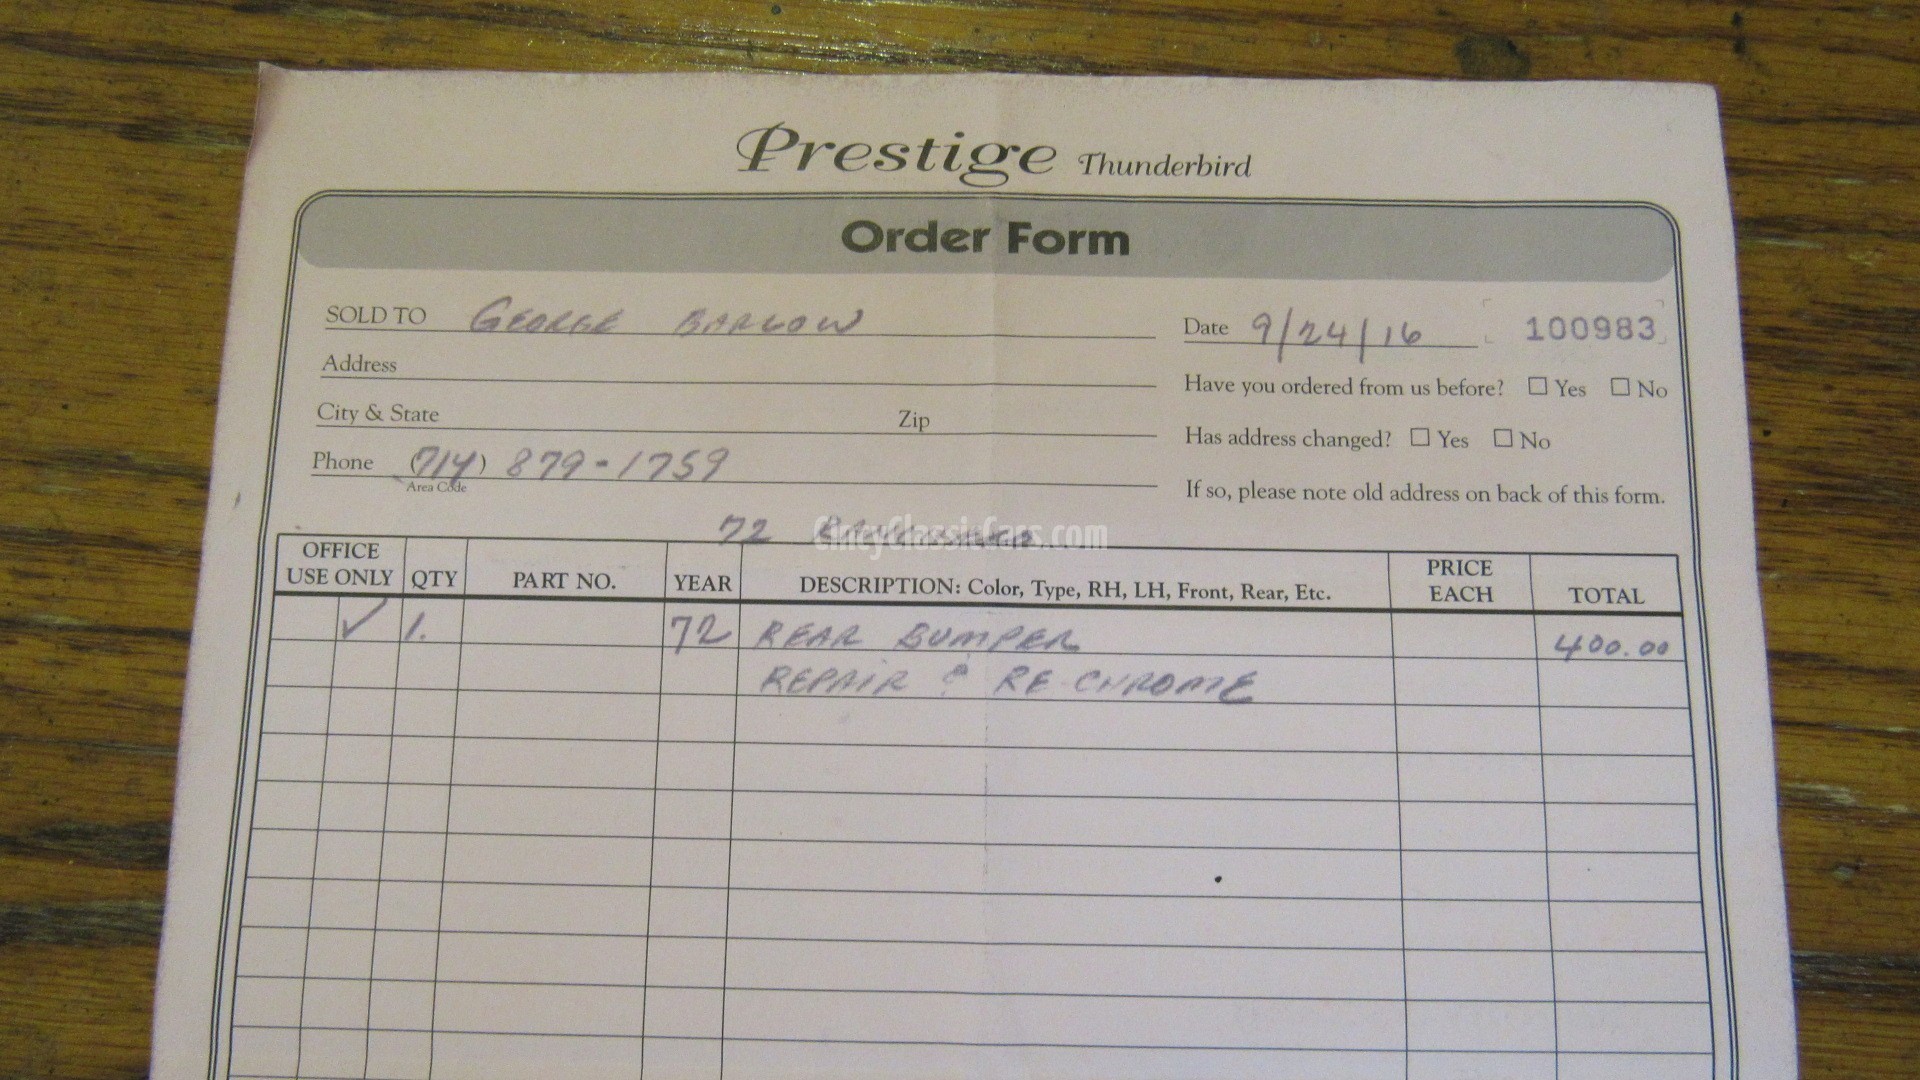 Prestige Thunderbird
Order Form
SOLD TO GEORGE BARLOW
Date 9/24/16 100983
Address
Have you ordered from us before? ☐ Yes ☐ No
City & State Zip
Has address changed? ☐ Yes ☐ No
Phone (714) 879-1759
Area Code
If so, please note old address on back of this form.
72
CincyClassicCars.com
OFFICE USE ONLY QTY PART NO. YEAR DESCRIPTION: Color, Type, RH, LH, Front, Rear, Etc. PRICE EACH TOTAL
✓ 1. 72 REAR BUMPER 400.00
REPAIR & RE-CHROME